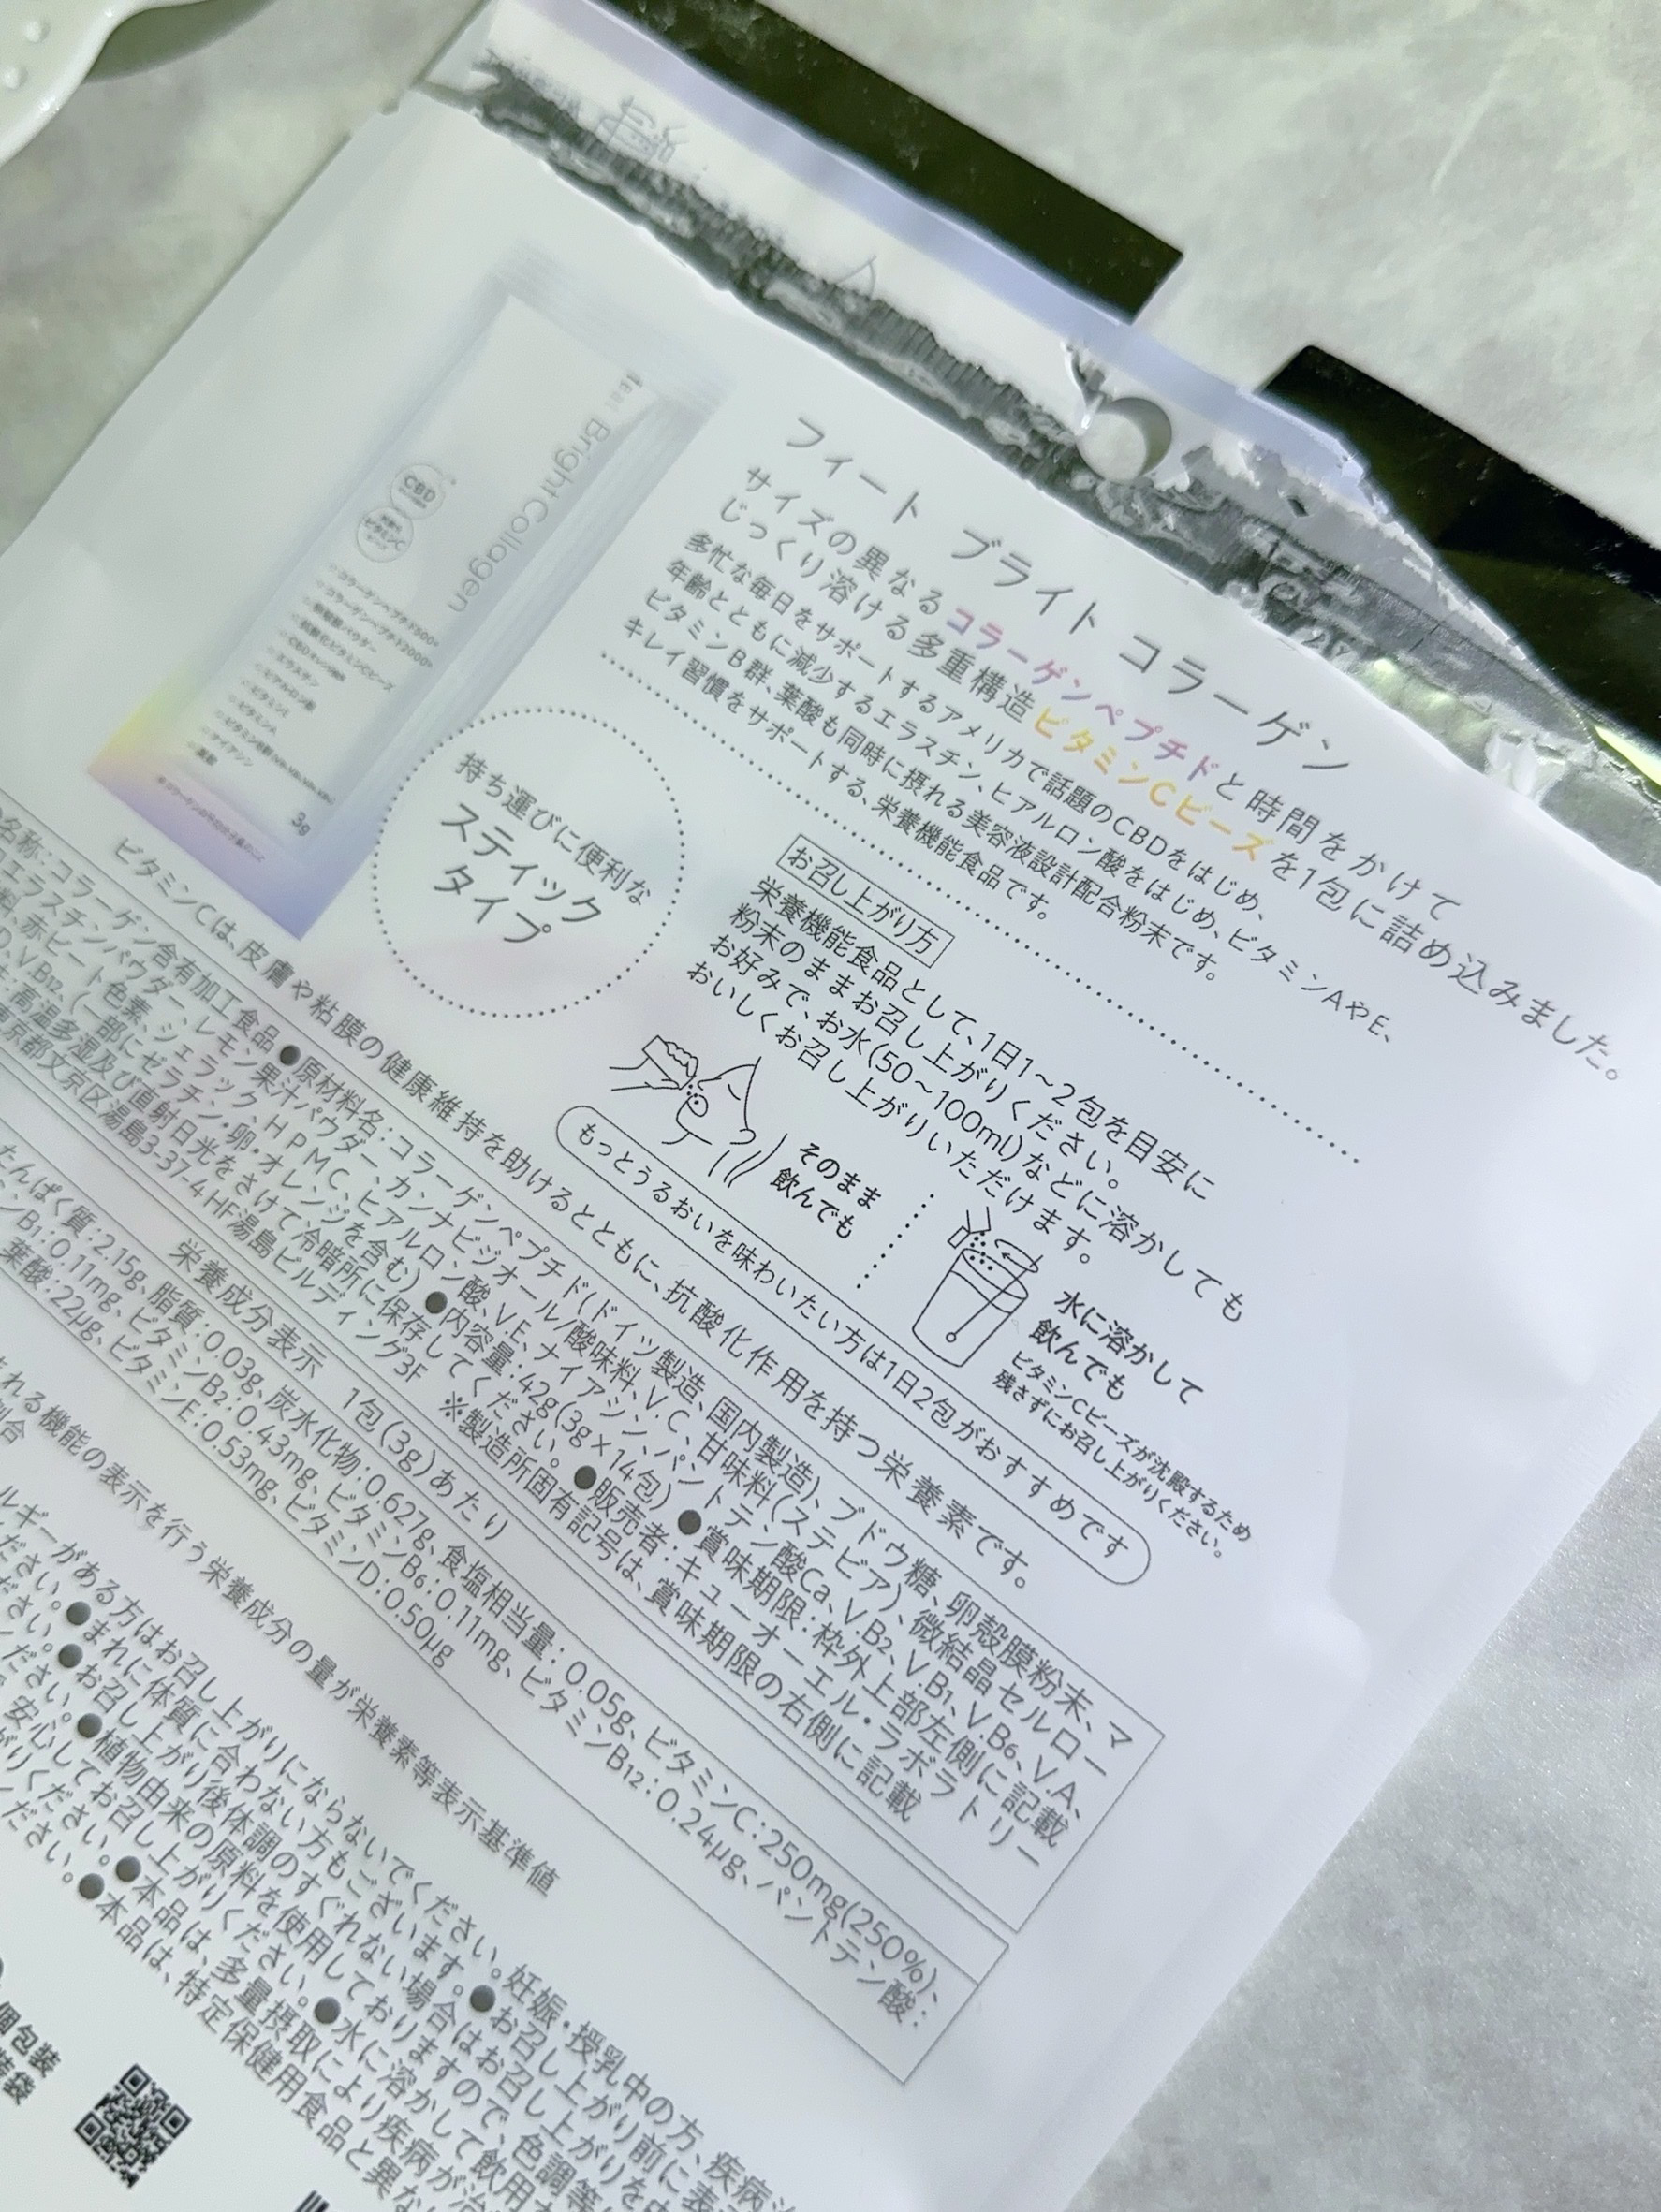 フィート ブライト コラーゲン
サイズの異なるコラーゲンペプチドと時間をかけて
じっくり溶ける多重構造ビタミンCビーズを1包に詰め込みました。
多忙な毎日をサポートするアメリカで話題のCBDをはじめ、
年齢とともに減少するエラスチン、ヒアルロン酸をはじめ、ビタミンAやE、
ビタミンB群、葉酸も同時に摂れる美容液設計配合粉末です。
キレイ習慣をサポートする、栄養機能食品です。
Bright Collagen
CBD
ビタミンC
コラーゲンペプチド500*
コラーゲンペプチド2000*
エラスチン
ヒアルロン酸
ビタミンE
ビタミンA
ナイアシン
葉酸
3g
持ち運びに便利な
スティック
タイプ
お召し上がり方
栄養機能食品として、1日1〜2包を目安に
粉末のままお召し上がりください。
お好みで、お水(50〜100ml)などに溶かしても
おいしくお召し上がりいただけます。
そのまま
飲んでも
水に溶かして
飲んでも
ビタミンCビーズが沈殿するため
残さずにお召し上がりください。
もっとうるおいを味わいたい方は1日2包がおすすめです
ビタミンCは、皮膚や粘膜の健康維持を助けるとともに、抗酸化作用を持つ栄養素です。
名称:コラーゲン含有加工食品 ●原材料名:コラーゲンペプチド(ドイツ製造、国内製造)、ブドウ糖、卵殻膜粉末、マ
エラスチンパウダー、レモン果汁パウダー、カンナビジオール/酸味料、V.C、甘味料(ステビア)、微結晶セルロー
料、赤ビート色素、シェラック、HPMC、ヒアルロン酸、V.E、ナイアシン、パントテン酸Ca、V.B2、V.B1、V.B6、V.A、
D、V.B12、(一部にゼラチン・卵・オレンジを含む) ●内容量:42g(3g×14包) ●賞味期限:枠外上部左側に記載
高温多湿及び直射日光をさけて冷暗所に保存してください。 ●販売者:キューオーエル・ラボラトリー
東京都文京区湯島3-37-4 HF湯島ビルディング3F ※製造所固有記号は、賞味期限の右側に記載
栄養成分表示 1包(3g)あたり
たんぱく質:2.15g、脂質:0.03g、炭水化物:0.627g、食塩相当量:0.05g、ビタミンC:250mg(250%)、
ンB1:0.11mg、ビタミンB2:0.43mg、ビタミンB6:0.11mg、ビタミンB12:0.24μg、パントテン酸:
葉酸:22μg、ビタミンE:0.53mg、ビタミンD:0.50μg
れる機能の表示を行う栄養成分の量が栄養素等表示基準値
割合
ルギーがある方はお召し上がりにならないでください。妊娠・授乳中の方、疾病
ださい。●まれに体質に合わない方もございます。●お召し上がり前に表
ださい。●お召し上がり後体調のすぐれない場合はお召し上がりを
ください。●植物由来の原料を使用しておりますので、色調等
安心してお召し上がりください。●水に溶かして飲用
がりください。●本品は、多量摂取により疾病が治
ださい。●本品は、特定保健用食品と異な
個包装
装袋